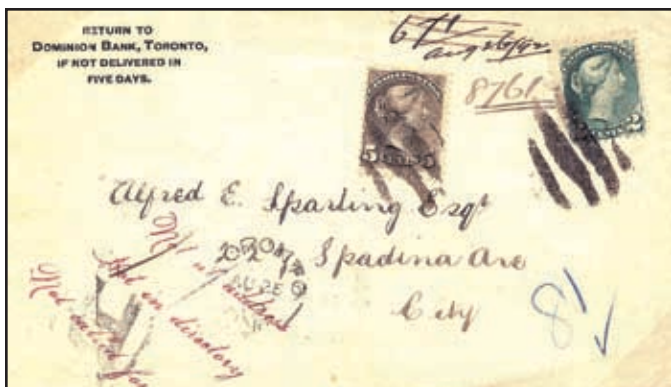 RETURN TO
DOMINION BANK, TORONTO,
IF NOT DELIVERED IN
FIVE DAYS.
8761
5 5
2
Alfred E. Sparling Esqr
Spadina Ave
City
Not at address
Not in directory
Not called for
81